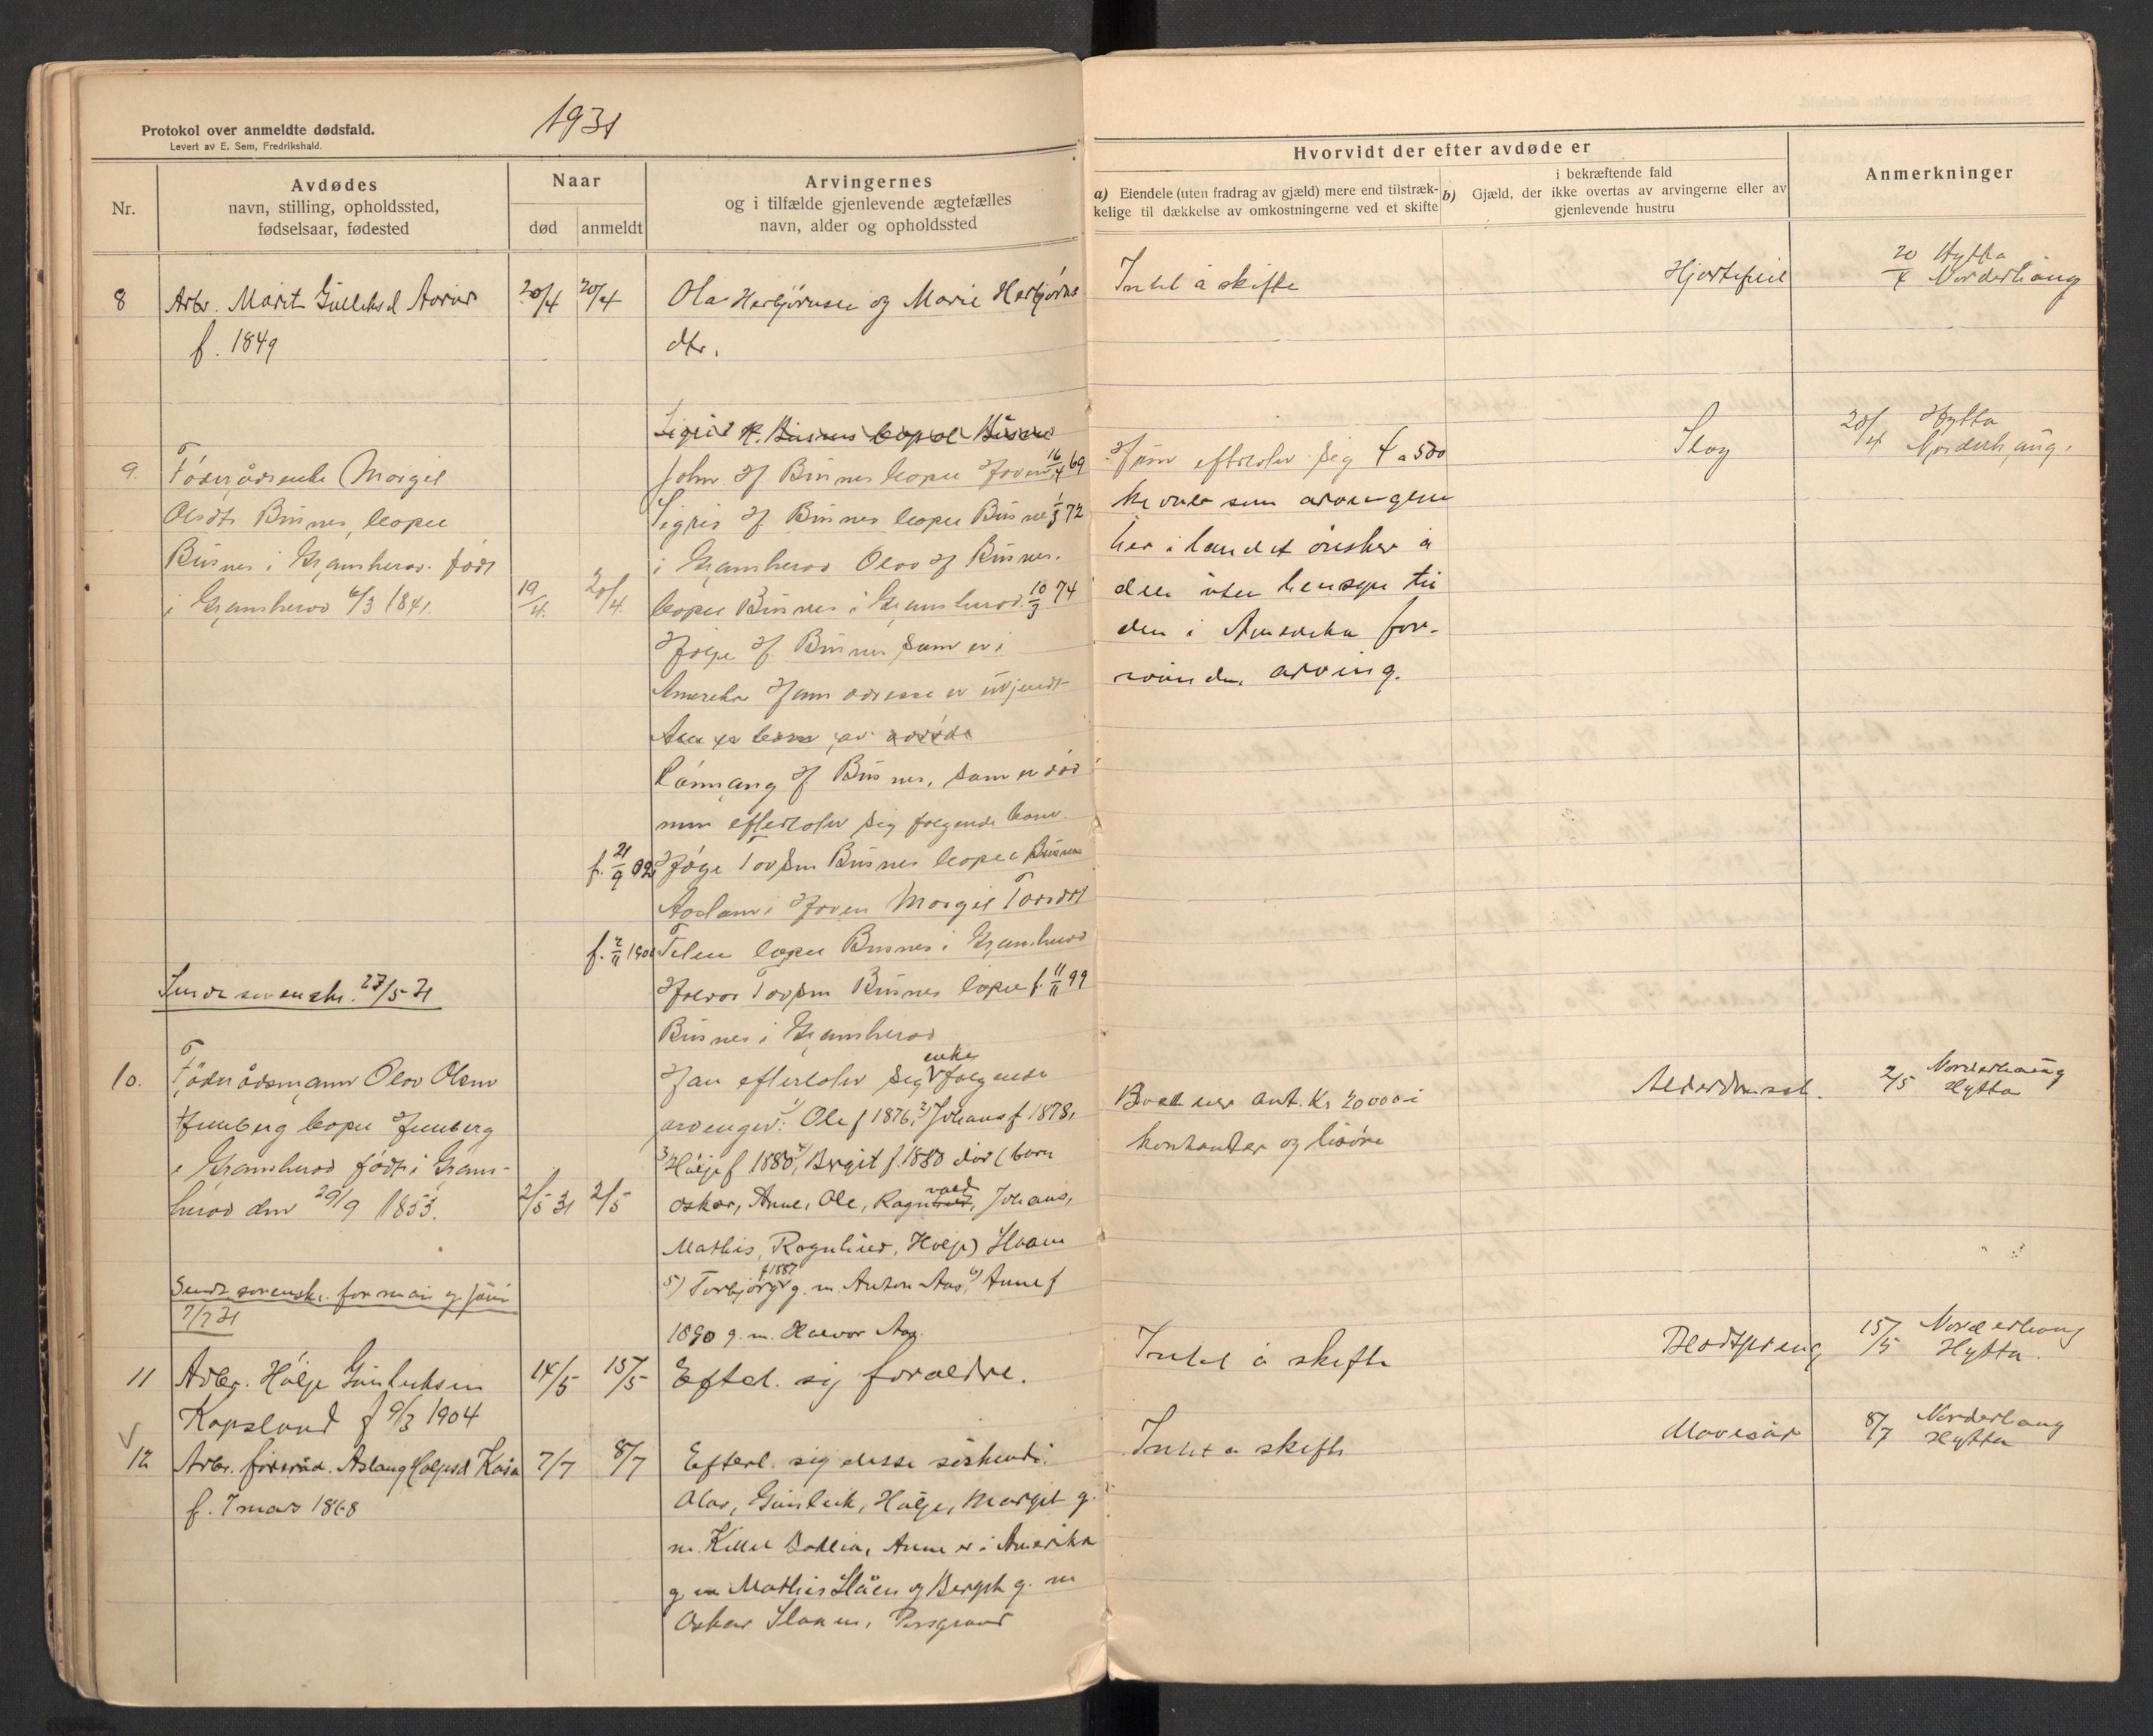 Protokol over anmeldte dødsfald.
Levert av E. Sem, Fredrikshald.
1931
Nr.
Avdødes
navn, stilling, opholdssted,
fødselsaar, fødested
Naar
død
anmeldt
Arvingernes
og i tilfælde gjenlevende ægtefælles
navn, alder og opholdssted
Hvorvidt der efter avdøde er
a) Eiendele (uten fradrag av gjæld) mere end tilstræk-
kelige til dækkelse av omkostningerne ved et skifte
b) Gjæld, der
i bekræftende fald
ikke overtas av arvingerne eller av
gjenlevende hustru
Anmerkninger
8
Arbr. Marit Gulleksd
f. 1849
20/4
20/4
Ola Herbjørnsen og Marie Herbjørns
dtr.
Intet å skifte
Hjertefeil
20/4 Hytta
Norderhaug
9.
Føderådsenke Margit
Olsdtr Busnes, bopel
Busnes i Gransherad. født
i Gransherad 6/3 1841.
19/4.
20/4.
John H Busnes bopel Hoven 16/4 69
Sigrid H Busnes bopel Busnes 1/3 72
i Gransherad Olav H Busnes.
bopel Busnes i Gransherad. 10/3 74
H Busnes som er i
Amerika Hans adresse er ukjendt
Alle er born av avdøde
H Busnes, som er død
men efterlater sig følgende born.
f. 21/9 02 Tovsen Busnes bopel Busnes
i Hoven Margit Tovsdtr
f. 2/11 Telen bopel Busnes i Gransherad
Halvor Tovsen Busnes bopel f. 11/11 99
Busnes i Gransherad
Hun efterlater sig 4 a 500
kroner som arvingene
her i landet ønsker å
dele uten hensyn til
den i Amerika for-
svundne arving.
Slag
20/4 Hytta
Norderhaug.
Sendt sorenskr. 27/5 31
10.
Føderådsmann Olav Olsen
bopel
i Gransherad født i Grans-
herad den 29/9 1853.
2/5 31
2/5
Han efterlater sig enke følgende
arvinger: 1) Ole f 1876, 2) Johans f 1878,
3) Hølje f 1880, 4) Birgit f. 1880 død (born
Oskar, Anne, Ole, Ragnvald, Johans,
Mathis, Ragnhild, Hølje) Slaaen
5) Torbjørg f 1887 g. m. Anton Aas, 6) Anne f
1890 g. m. Halvor Aas.
Boet eier ant. Kr 20000 i
kontanter og løsøre
Alderdomssv.
2/5 Norderhaug
Hytta
Sendt sorenskr. for mai og juni
7/7 31
11
Arbr. Hølje Gunleiksen
Kopsland f 9/3 1904
14/5
15/5
Efterl. sig foreldre.
Intet å skifte
Blodspreng
15/5 Norderhaug
Hytta.
12
Arbr. Aslaug Høljesd Kåsa
f. 7 mars 1868
7/7
8/7
Efterl. sig disse søskende:
Olav, Gunleik, Hølje, Margit g.
m. Kittel Bakken, Anne er i Amerika
g m Mathis Slåen og Bergit g. m
Oskar Slaaen, Porsgrund
Intet å skifte
Mavesår
8/7 Norderhaug
Hytta